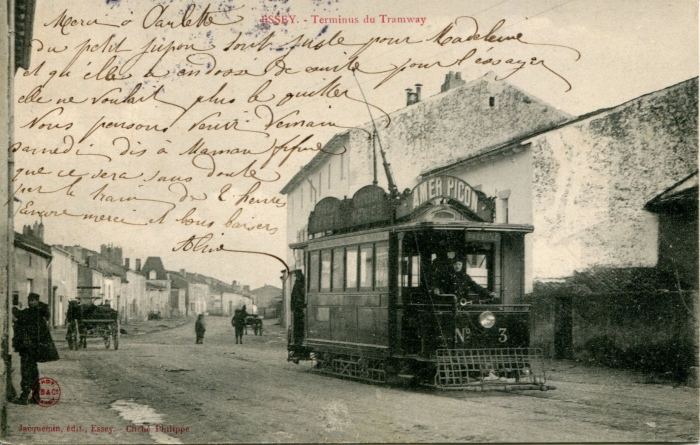 ESSEY. - Terminus du Tramway
Merci ô Paulette
du petit jupon sont juste pour Madeleine
et qu'elle a endossé de suite pour l'essayer
elle ne voulait plus le quitter
Nous pensons venir demain
samedi dis à Maman
que ce sera sans doute
par le train de 2 heures
Encore merci et bons baisers
AMER PICON
Nº 3
Jacquemin, édit., Essey. - Cliché Philippe